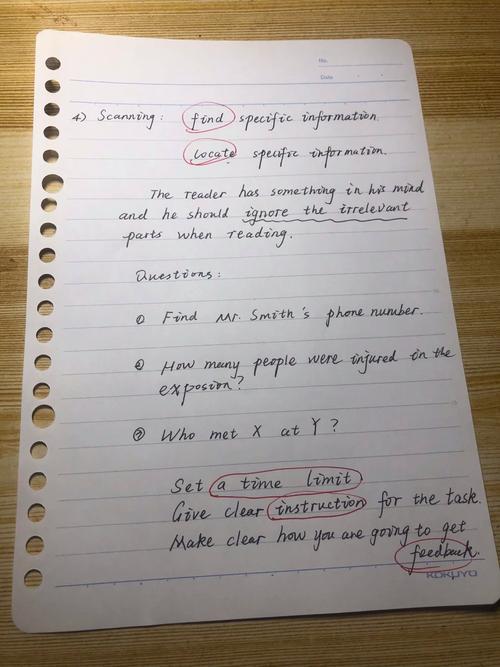 No.
Date
4) Scanning: find specific information.
locate specific information.
The reader has something in his mind
and he should ignore the irrelevant
parts when reading.
Questions:
① Find Mr. Smith's phone number.
② How many people were injured in the
exposion?
③ Who met X at Y?
Set a time limit
Give clear instruction for the task.
Make clear how you are going to get
feedback.
KOKUYO